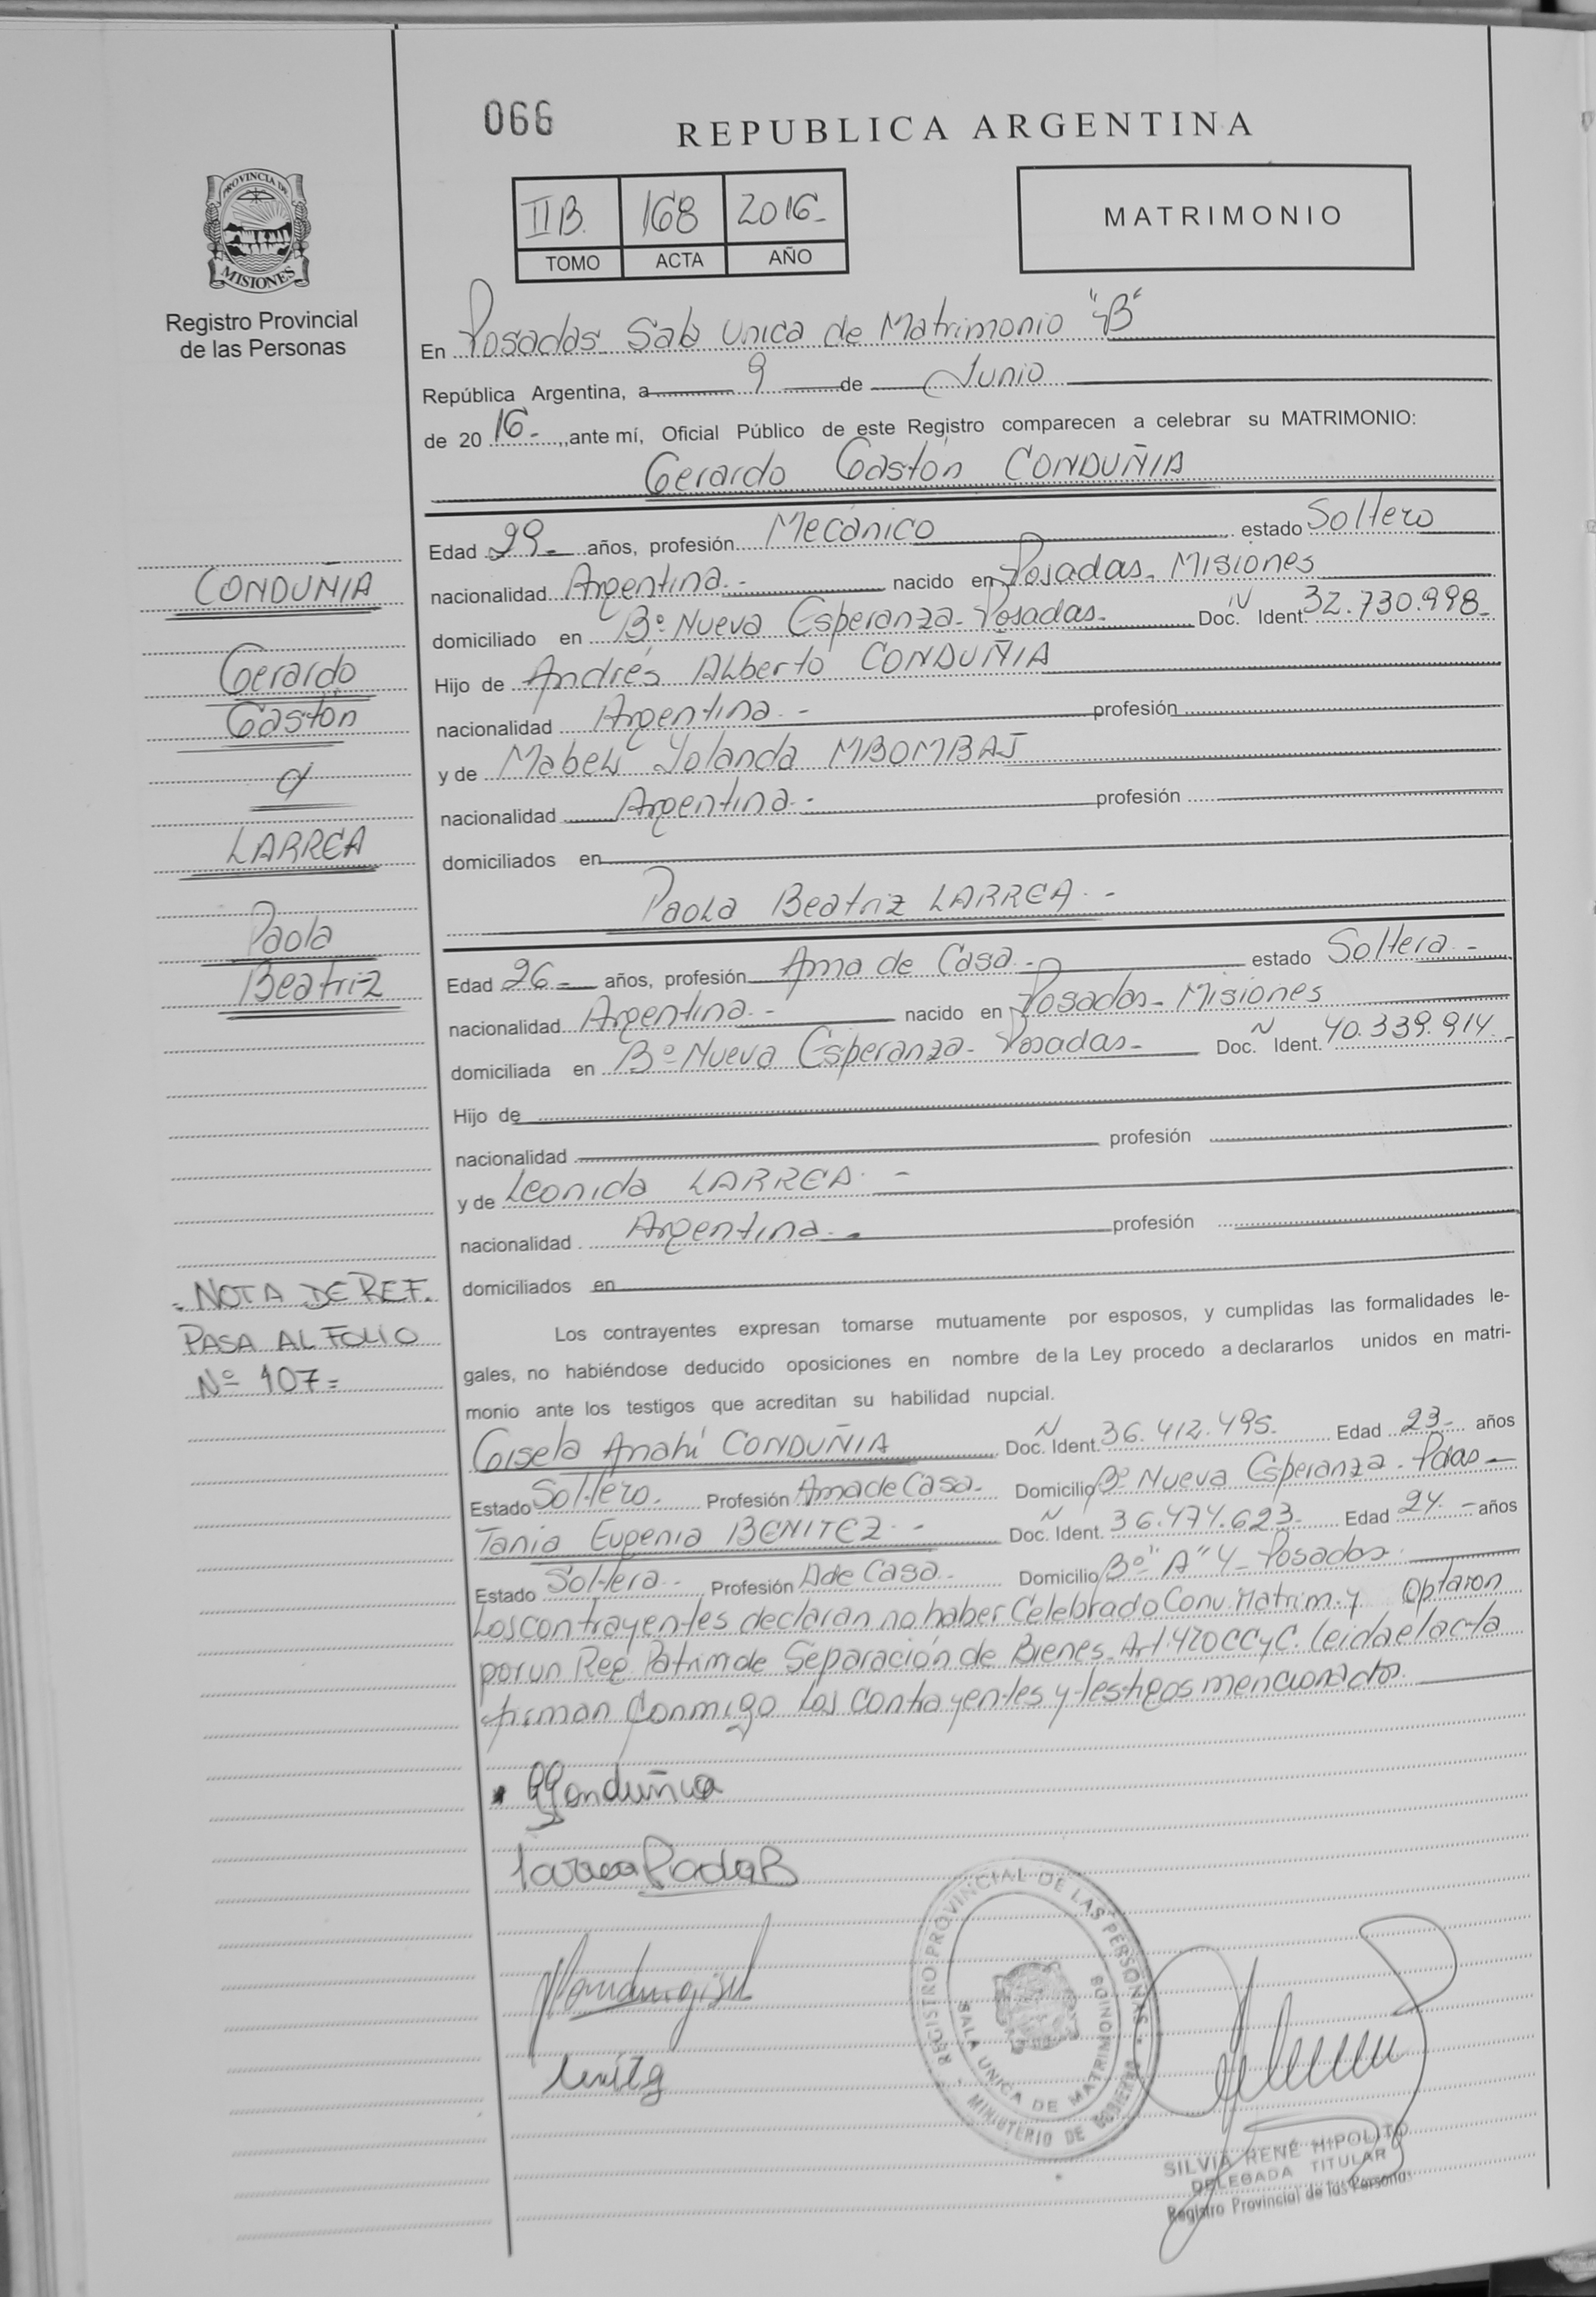 066
REPUBLICA ARGENTINA
PROVINCIA DE
MISIONES
Registro Provincial
de las Personas
IIB. 168 2016-
TOMO ACTA AÑO
MATRIMONIO
En Posadas Sala Unica de Matrimonio "B"
República Argentina, a 9 de Junio
de 20 16.- ,,ante mí, Oficial Público de este Registro comparecen a celebrar su MATRIMONIO:
Gerardo Gastón CONDUÑIA
Edad 29- años, profesión Mecánico estado Soltero
nacionalidad Argentina.- nacido en Posadas- Misiones
domiciliado en Bº Nueva Esperanza- Posadas- Doc. N Ident. 32.730.998-
Hijo de Andrés Alberto CONDUÑIA
nacionalidad Argentina.- profesión
y de Mabel Yolanda MBOMBAJ
nacionalidad Argentina.- profesión
domiciliados en
Paola Beatriz LARREA.-
Edad 26- años, profesión Ama de Casa.- estado Soltera.-
nacionalidad Argentina.- nacido en Posadas- Misiones
domiciliada en Bº Nueva Esperanza- Posadas- Doc. N Ident. 40.339.914.-
Hijo de
nacionalidad profesión
y de Leonida LARREA.-
nacionalidad Argentina.- profesión
domiciliados en
Los contrayentes expresan tomarse mutuamente por esposos, y cumplidas las formalidades le-
gales, no habiéndose deducido oposiciones en nombre de la Ley procedo a declararlos unidos en matri-
monio ante los testigos que acreditan su habilidad nupcial.
Gisela Anahí CONDUÑIA Doc. N Ident. 36.412.495. Edad 23- años
Estado Soltero. Profesión Ama de Casa- Domicilio Bº Nueva Esperanza- Pdas-
Tania Eugenia BENITEZ.- Doc. N Ident. 36.474.623- Edad 24.- años
Estado Soltera- Profesión A de Casa- Domicilio Bº "A" 4- Posadas
Los contrayentes declaran no haber Celebrado Conv. Matrim. y Optaron
por un Reg. Patrim de Separación de Bienes. Art. 420 CCyC. leida el acta
firman conmigo los contrayentes y testigos mencionados.
CONDUÑIA
Gerardo
Gastón
c/
LARREA
Paola
Beatriz
- NOTA DE REF.
PASA AL FOLIO
Nº 107=
Larrea Paola B
REGISTRO PROVINCIAL DE LAS PERSONAS
MINISTERIO DE GOBIERNO
SALA UNICA DE MATRIMONIOS
SILVIA RENÉ HIPOLITO
DELEGADA TITULAR
Registro Provincial de las Personas